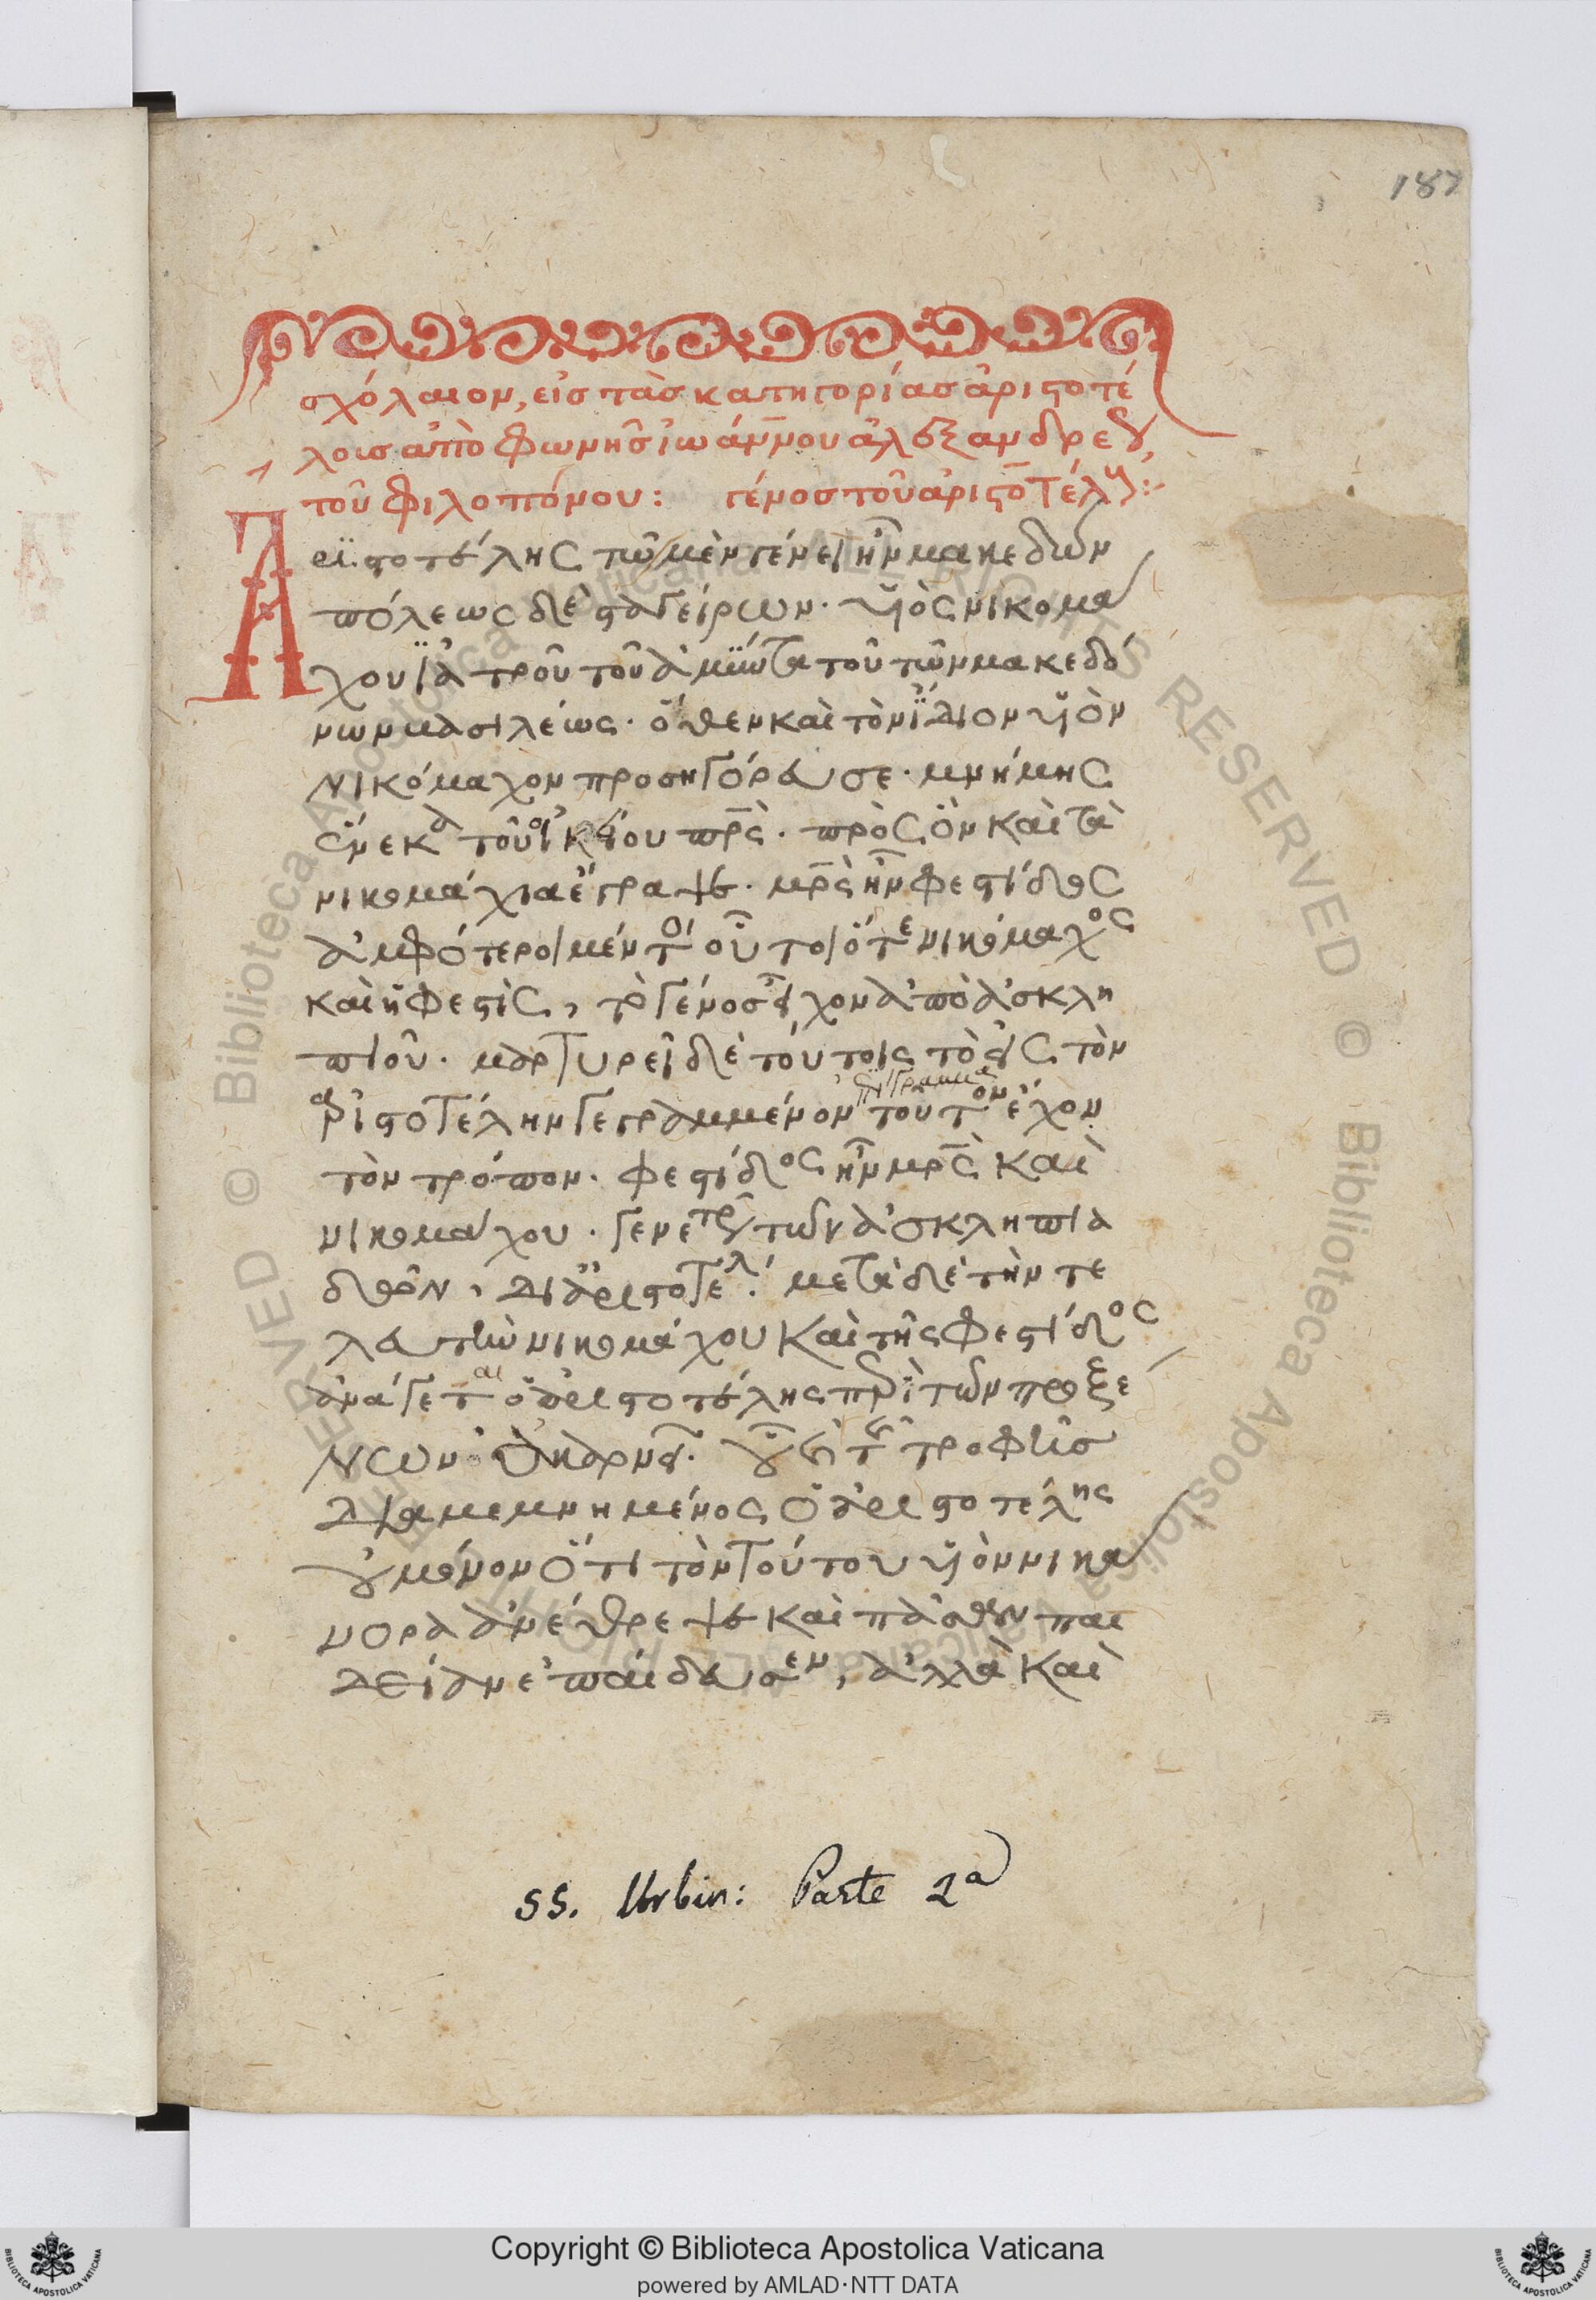 187
σχόλαιον, εἰς τὰς κατηγορίας ἀριστοτέ
λοις ἀπὸ φωνῆς ἰωάννου ἀλεξανδρέου,
τοῦ φιλοπόνου: γένος τοῦ ἀριστοτέλους:
Α
ρϊστοτέλης τῶ μὲν γένει ἦν μακεδὼν
πόλεως δὲ σταγείρων· υἱὸς νικομα
χου ϊατροῦ τοῦ ἀμύντα τοῦ τῶν μακεδό
νων βασιλέως· ὅθεν καὶ τὸν ἴδιον υἱὸν
νικόμαχον προσηγόρευσε· μνήμης
ἕνεκα τοῦ οἰκείου πρς· πρὸς ὃν καὶ τὰ
νικομάχια ἔγραψε· μρς ἦν φεστίδος
ἀμφότεροι μέντοι οὗτοι ὅ τε νικόμαχος
καὶ ἡ φεστὶς, τὸ γένος εἶχον ἀπὸ ἀσκλη
πιοῦ· μαρτυρεῖ δὲ τούτοις τὸ εἰς τὸν
ἀριστοτέλην γεγραμμένον ἐπίγραμμα τοῦτον ἔχον
τὸν τρόπον· φεστίδος ἦν μρς καὶ
νικομάχου· γενετῆρος τῶν ἀσκληπια
δῶν, δῖ ἀριστοτέλ· μετὰ δὲ τὴν τε
λευτὴν νικομάχου καὶ τῆς φεστίδος
ἀνάγεται ὁ ἀριστοτέλης περὶ τῶν προξε
νων
τροφῆς
διαμεμνημένος ὁ ἀριστοτέλης
οὐ μόνον ὅτι τὸν τούτου υἱὸν νικα
νορα ἀνέθρεψε καὶ πᾶσαν παι
δείαν ἐπαίδευσεν, ἀλλὰ καὶ
ss. Urbin: Parte 2a
© Biblioteca Apostolica Vaticana ALL RIGHTS RESERVED
Copyright © Biblioteca Apostolica Vaticana
powered by AMLAD·NTT DATA
BIBLIOTECA APOSTOLICA VATICANA
BIBLIOTECA APOSTOLICA VATICANA